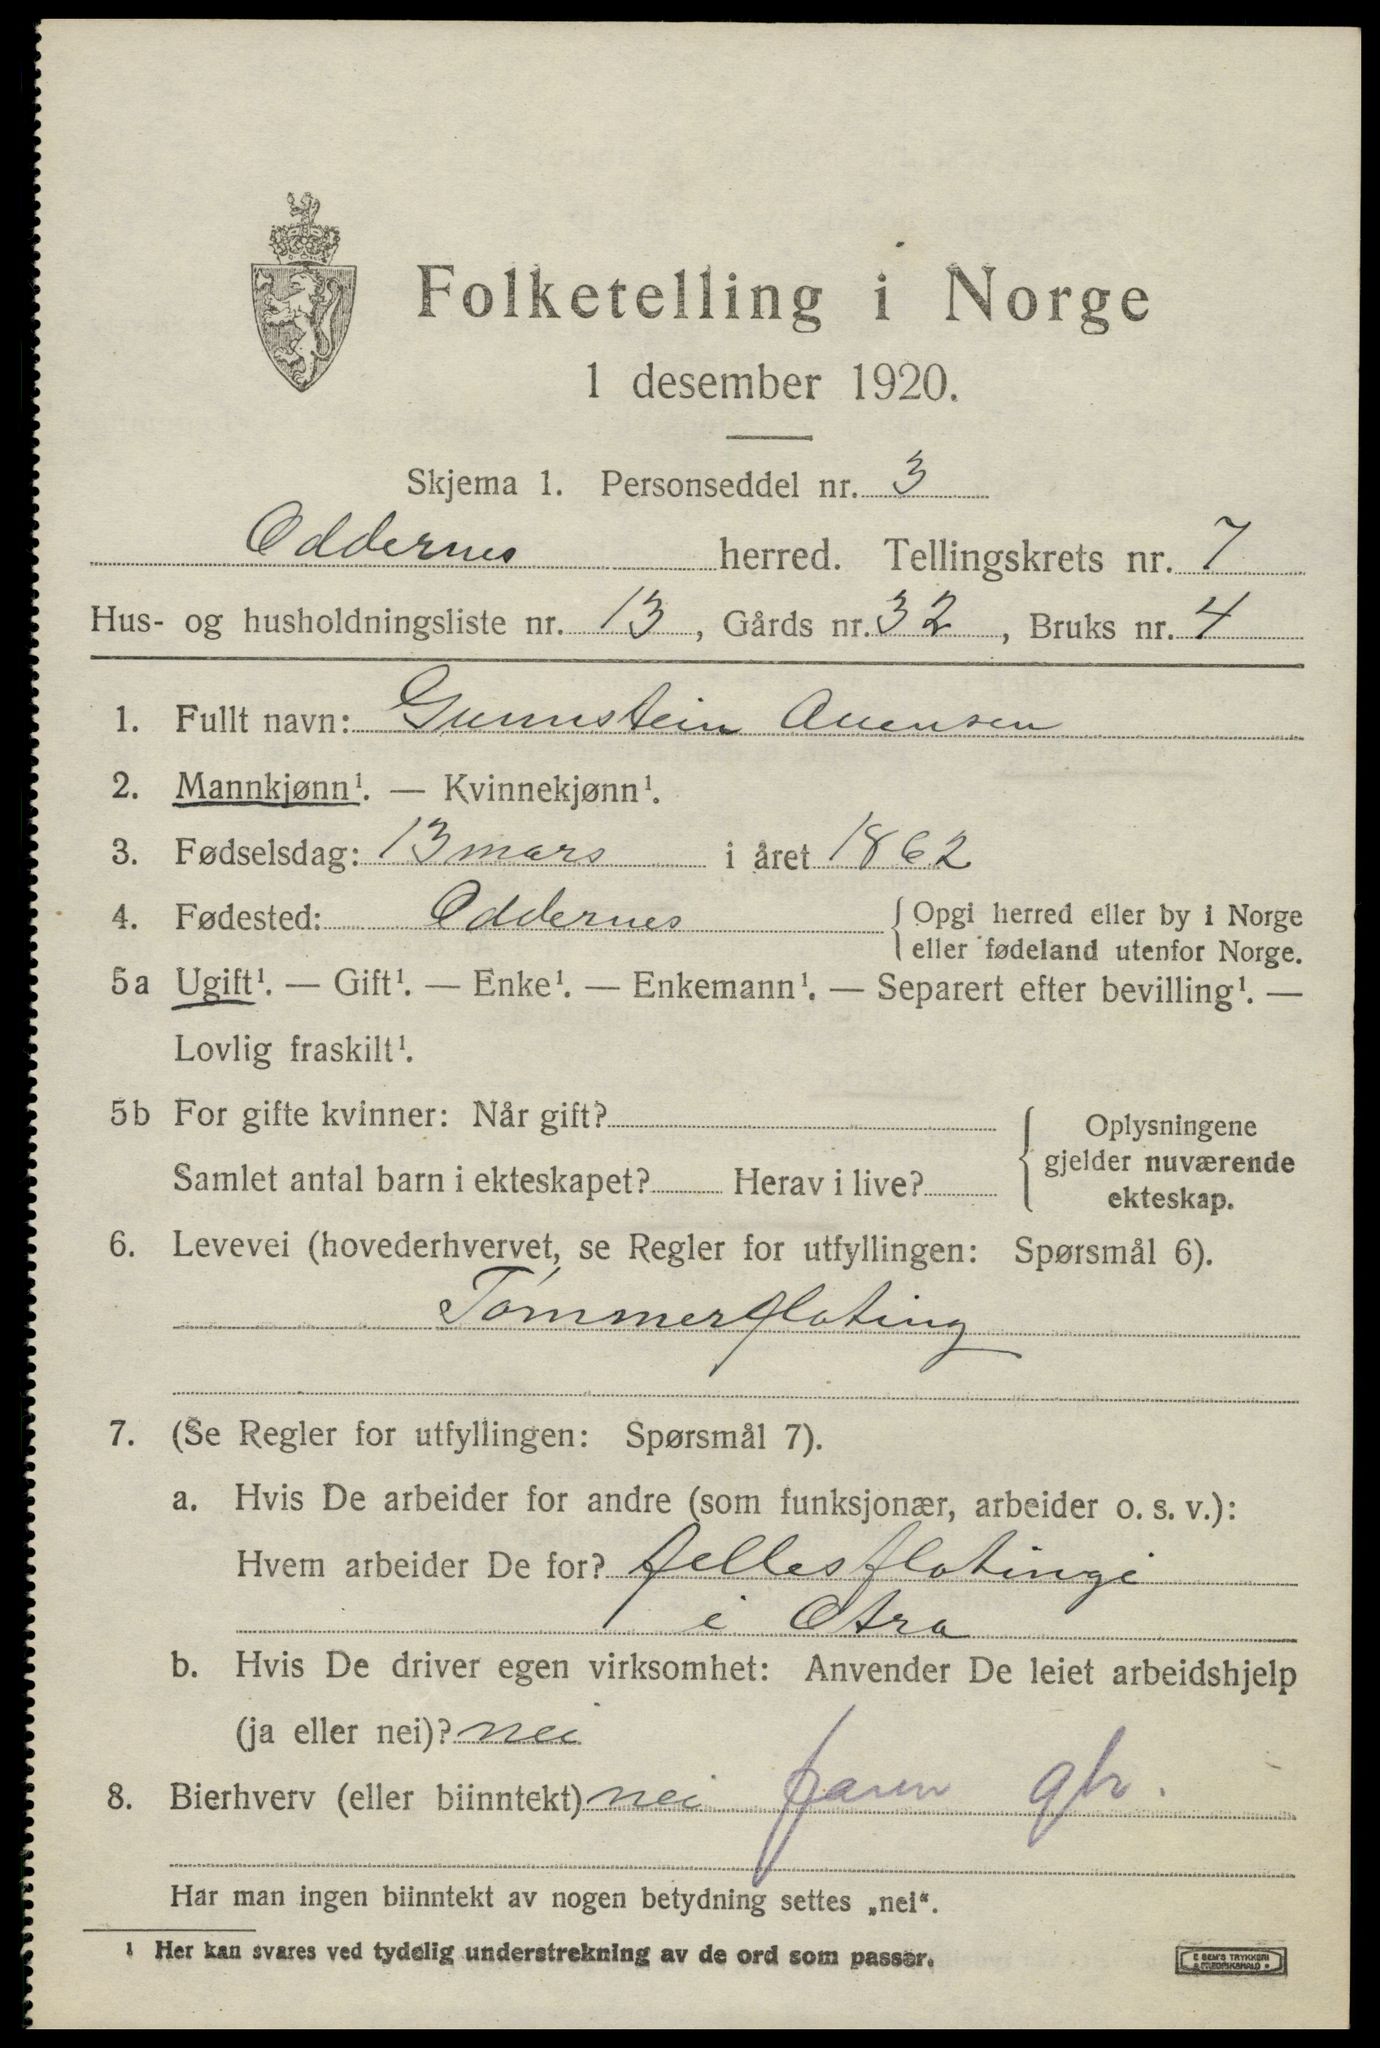 Folketelling i Norge
1 desember 1920.
Skjema 1. Personseddel nr. 3
Oddernes herred. Tellingskrets nr. 7
Hus- og husholdningsliste nr. 13, Gårds nr. 32, Bruks nr. 4
1. Fullt navn: Gunnstein Auensen
2. Mannkjønn¹. — Kvinnekjønn¹.
3. Fødselsdag: 13 mars i året 1862
4. Fødested: Oddernes { Opgi herred eller by i Norge
eller fødeland utenfor Norge.
5a Ugift¹. — Gift¹. — Enke¹. — Enkemann¹. — Separert efter bevilling¹. —
Lovlig fraskilt¹.
5b For gifte kvinner: Når gift? { Oplysningene
gjelder nuværende
Samlet antal barn i ekteskapet? Herav i live?
ekteskap.
6. Levevei (hovederhvervet, se Regler for utfyllingen: Spørsmål 6).
Tømmerfløting
7. (Se Regler for utfyllingen: Spørsmål 7).
a. Hvis De arbeider for andre (som funksjonær, arbeider o. s. v.):
Hvem arbeider De for? fellesfløtingi
i Otra
b. Hvis De driver egen virksomhet: Anvender De leiet arbeidshjelp
(ja eller nei)? nei
8. Bierhverv (eller biinntekt) nei
Har man ingen biinntekt av nogen betydning settes „nei“.
¹ Her kan svares ved tydelig understrekning av de ord som passer.
E SEM'S TRYKKERI
FREDRIKSHALD